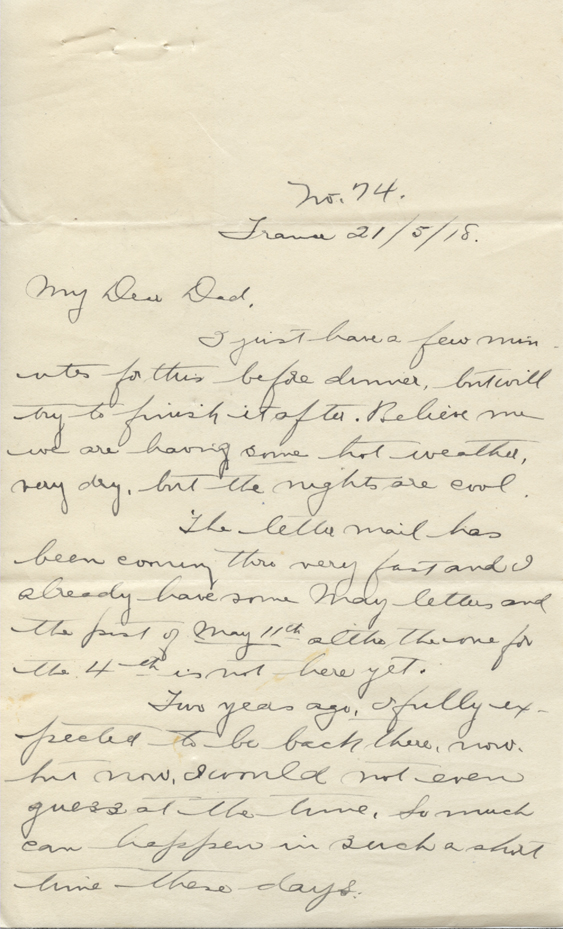 No. 74.
France 21/5/18.
My Dear Dad,
I just have a few min-
utes for this before dinner, but will
try to finish it after. Believe me
we are having some hot weather,
very dry, but the nights are cool.
The letter mail has
been coming thru very fast and I
already have some May letters and
the post of May 11th altho the one for
the 4th is not here yet.
Two years ago, I fully ex-
pected to be back there, now.
but now, I would not even
guess at the time. So much
can happen in such a short
time these days.